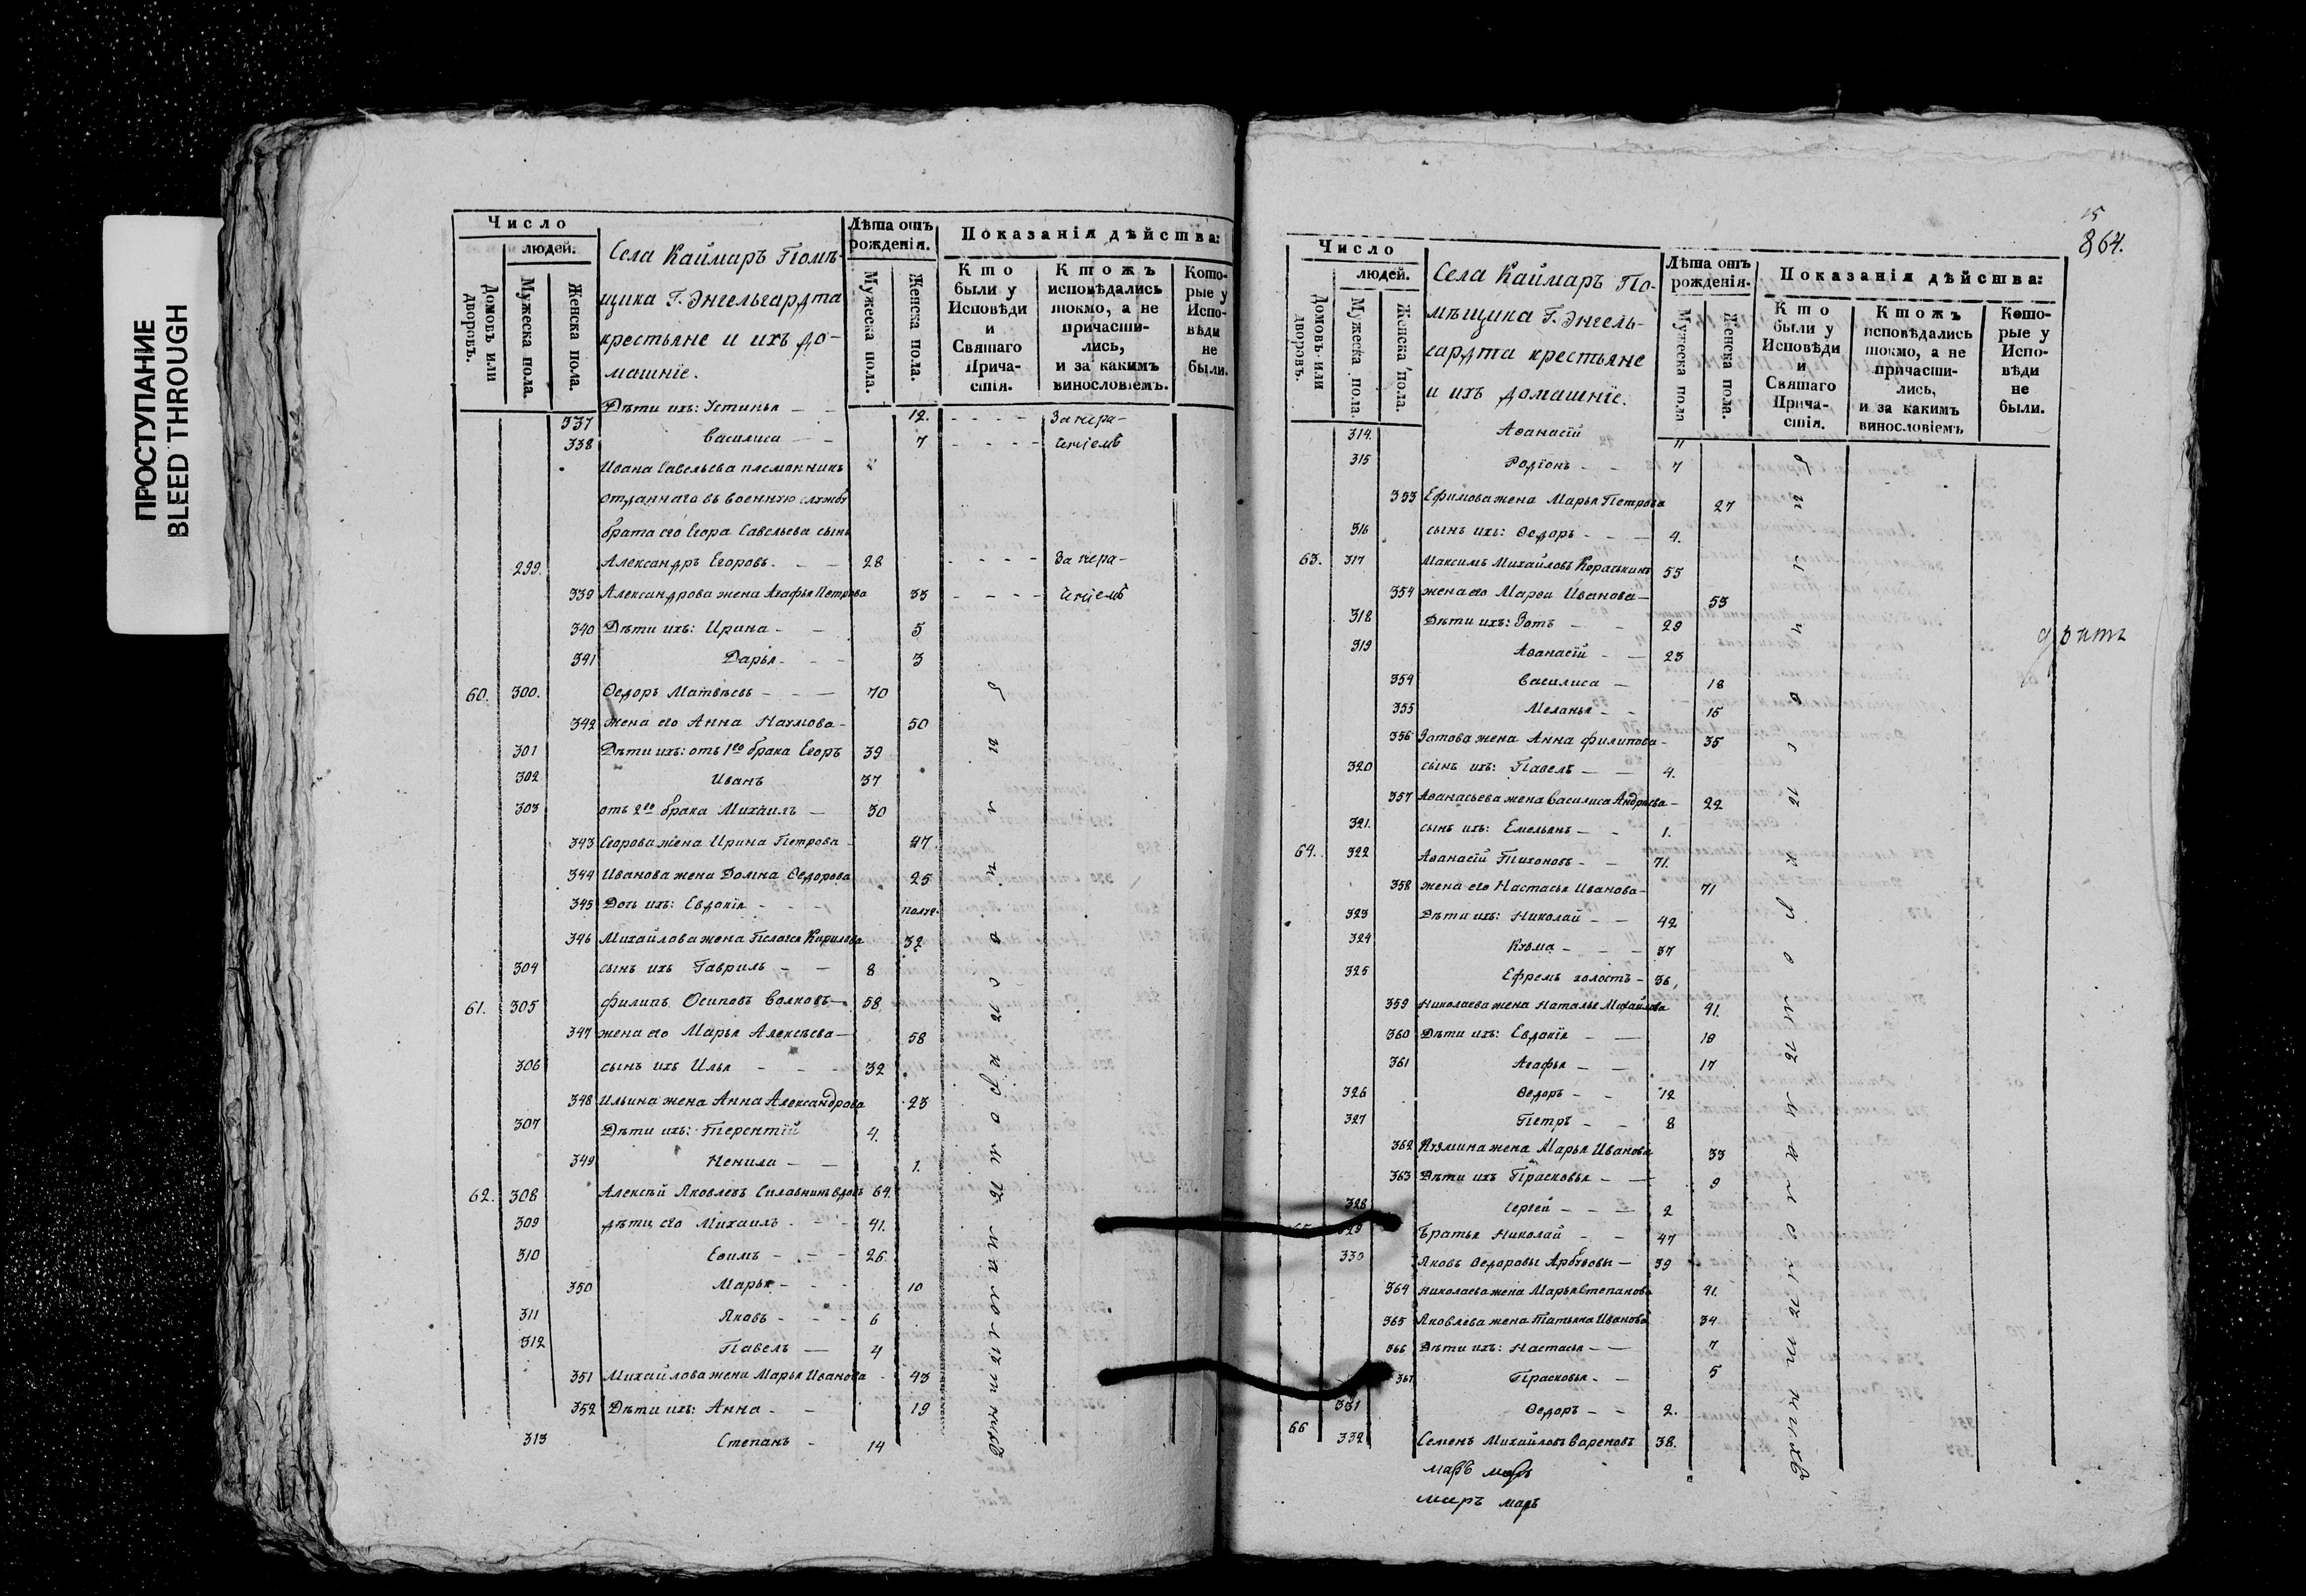 ПРОСТУПАНИЕ
BLEED THROUGH
Число
людей.
Домовъ или дворовъ.
Мужеска пола.
Женска пола.
Села Каймаръ Помѣ-
щика Г. Энгельгардта
крестьяне и ихъ до-
машніе.
Лѣта отъ рожденія.
Мужеска пола.
Женска пола.
Показанія дѣйства:
Кто были у Исповѣди и Святаго Прича-стія.
Ктожъ исповѣдались токмо, а не причасти-лись, и за какимъ винословіемъ.
Кото-рые у Испо-вѣди не были.
337 Дѣти ихъ: Устинья 12. За нера-
338 Василиса 7 ченіемъ
Ивана Савельева племянникъ
отданнаго въ военную службу
брата его Егора Савельева сынъ
299. Александръ Егоровъ. 28 За нера-
339 Александрова жена Агафья Петрова 33 ченіемъ
340 Дѣти ихъ: Ирина 5
341 Дарья 3
60. 300. Ѳедоръ Матвѣевъ 70
342 жена его Анна Наумова 50
301 Дѣти ихъ: отъ 1го брака Егоръ 39
302 Иванъ 37
303 отъ 2го брака Михаилъ 30
343 Егорова жена Ирина Петрова 47.
344 Иванова жена Домна Ѳедорова 25
345 Дочь ихъ: Евдокія полуг.
346 Михайлова жена Пелагея Кирилова 32
304 сынъ ихъ Гаврилъ 8
61. 305 Филипъ Осиповъ Волковъ 58
347 жена его Марья Алексѣева 58
306 сынъ ихъ Илья 32
348 Ильина жена Анна Александрова 23
307 Дѣти ихъ: Терентій 4.
349 Ненила 1.
62. 308 Алексѣй Яковлевъ вдовъ 64.
309 дѣти его Михаилъ 41.
310 Еѳимъ 26.
350 Марья 10
311 Яковъ 6
312 Павелъ 4
351 Михайлова жена Марья Иванова 43
352 Дѣти ихъ: Анна 19
313 Степанъ 14
были о с ѣ к р о м ѣ малолѣтныхъ
15
864.
Число
людей.
Домовъ или дворовъ.
Мужеска пола.
Женска пола.
Села Каймаръ По-
мѣщика Г. Энгель-
гардта крестьяне
и ихъ домашніе.
Лѣта отъ рожденія.
Мужеска пола
Женска пола.
Показанія дѣйства:
Кто были у Исповѣди и Святаго Прича-стія.
Ктожъ исповѣдались токмо, а не причасти-лись, и за какимъ винословіемъ
Кото-рые у Испо-вѣди не были.
314. Аѳанасій 11
315 Родіонъ 7
353 Ефимова жена Марья Петрова 27
316 сынъ ихъ: Ѳедоръ 4.
63. 317 Максимъ Михайловъ 55
354 жена его Марѳа Иванова 53
318 Дѣти ихъ: Зотъ 29
319 Аѳанасій 23
354 Василиса 18
355 Меланья 15
356 Зотова жена Анна Филипова 35
320 сынъ ихъ: Павелъ 4.
357 Аѳанасьева жена Василиса Андреева 22
321. сынъ ихъ: Емельянъ 1.
64. 322 Аѳанасій Тихоновъ 71.
358 жена его Настасья Иванова 71
323 Дѣти ихъ: Николай 42
324 Кузма 37
325 Ефремъ холостъ 36,
359 Николаева жена Наталья Михайлова 41.
360 Дѣти ихъ: Евдокія 19
361 Агафья 17
326 Ѳедоръ 12
327 Петръ 8
362 Кузмина жена Марья Иванова 33
363 Дѣти ихъ Прасковья 9
328 Сергей 2
65 329 Братья Николай 47
330 Яковъ Ѳедоровы Арбузовы 39
364 Николаева жена Марья Степанова 41.
365 Яковлева жена Татьяна Иванова 34
366 Дѣти ихъ: Настасья 7
367 Прасковья 5
331 Ѳедоръ 2.
66 332 Семенъ Михайловъ Вареновъ 38.
были о с ѣ к р о м ѣ малолѣтныхъ